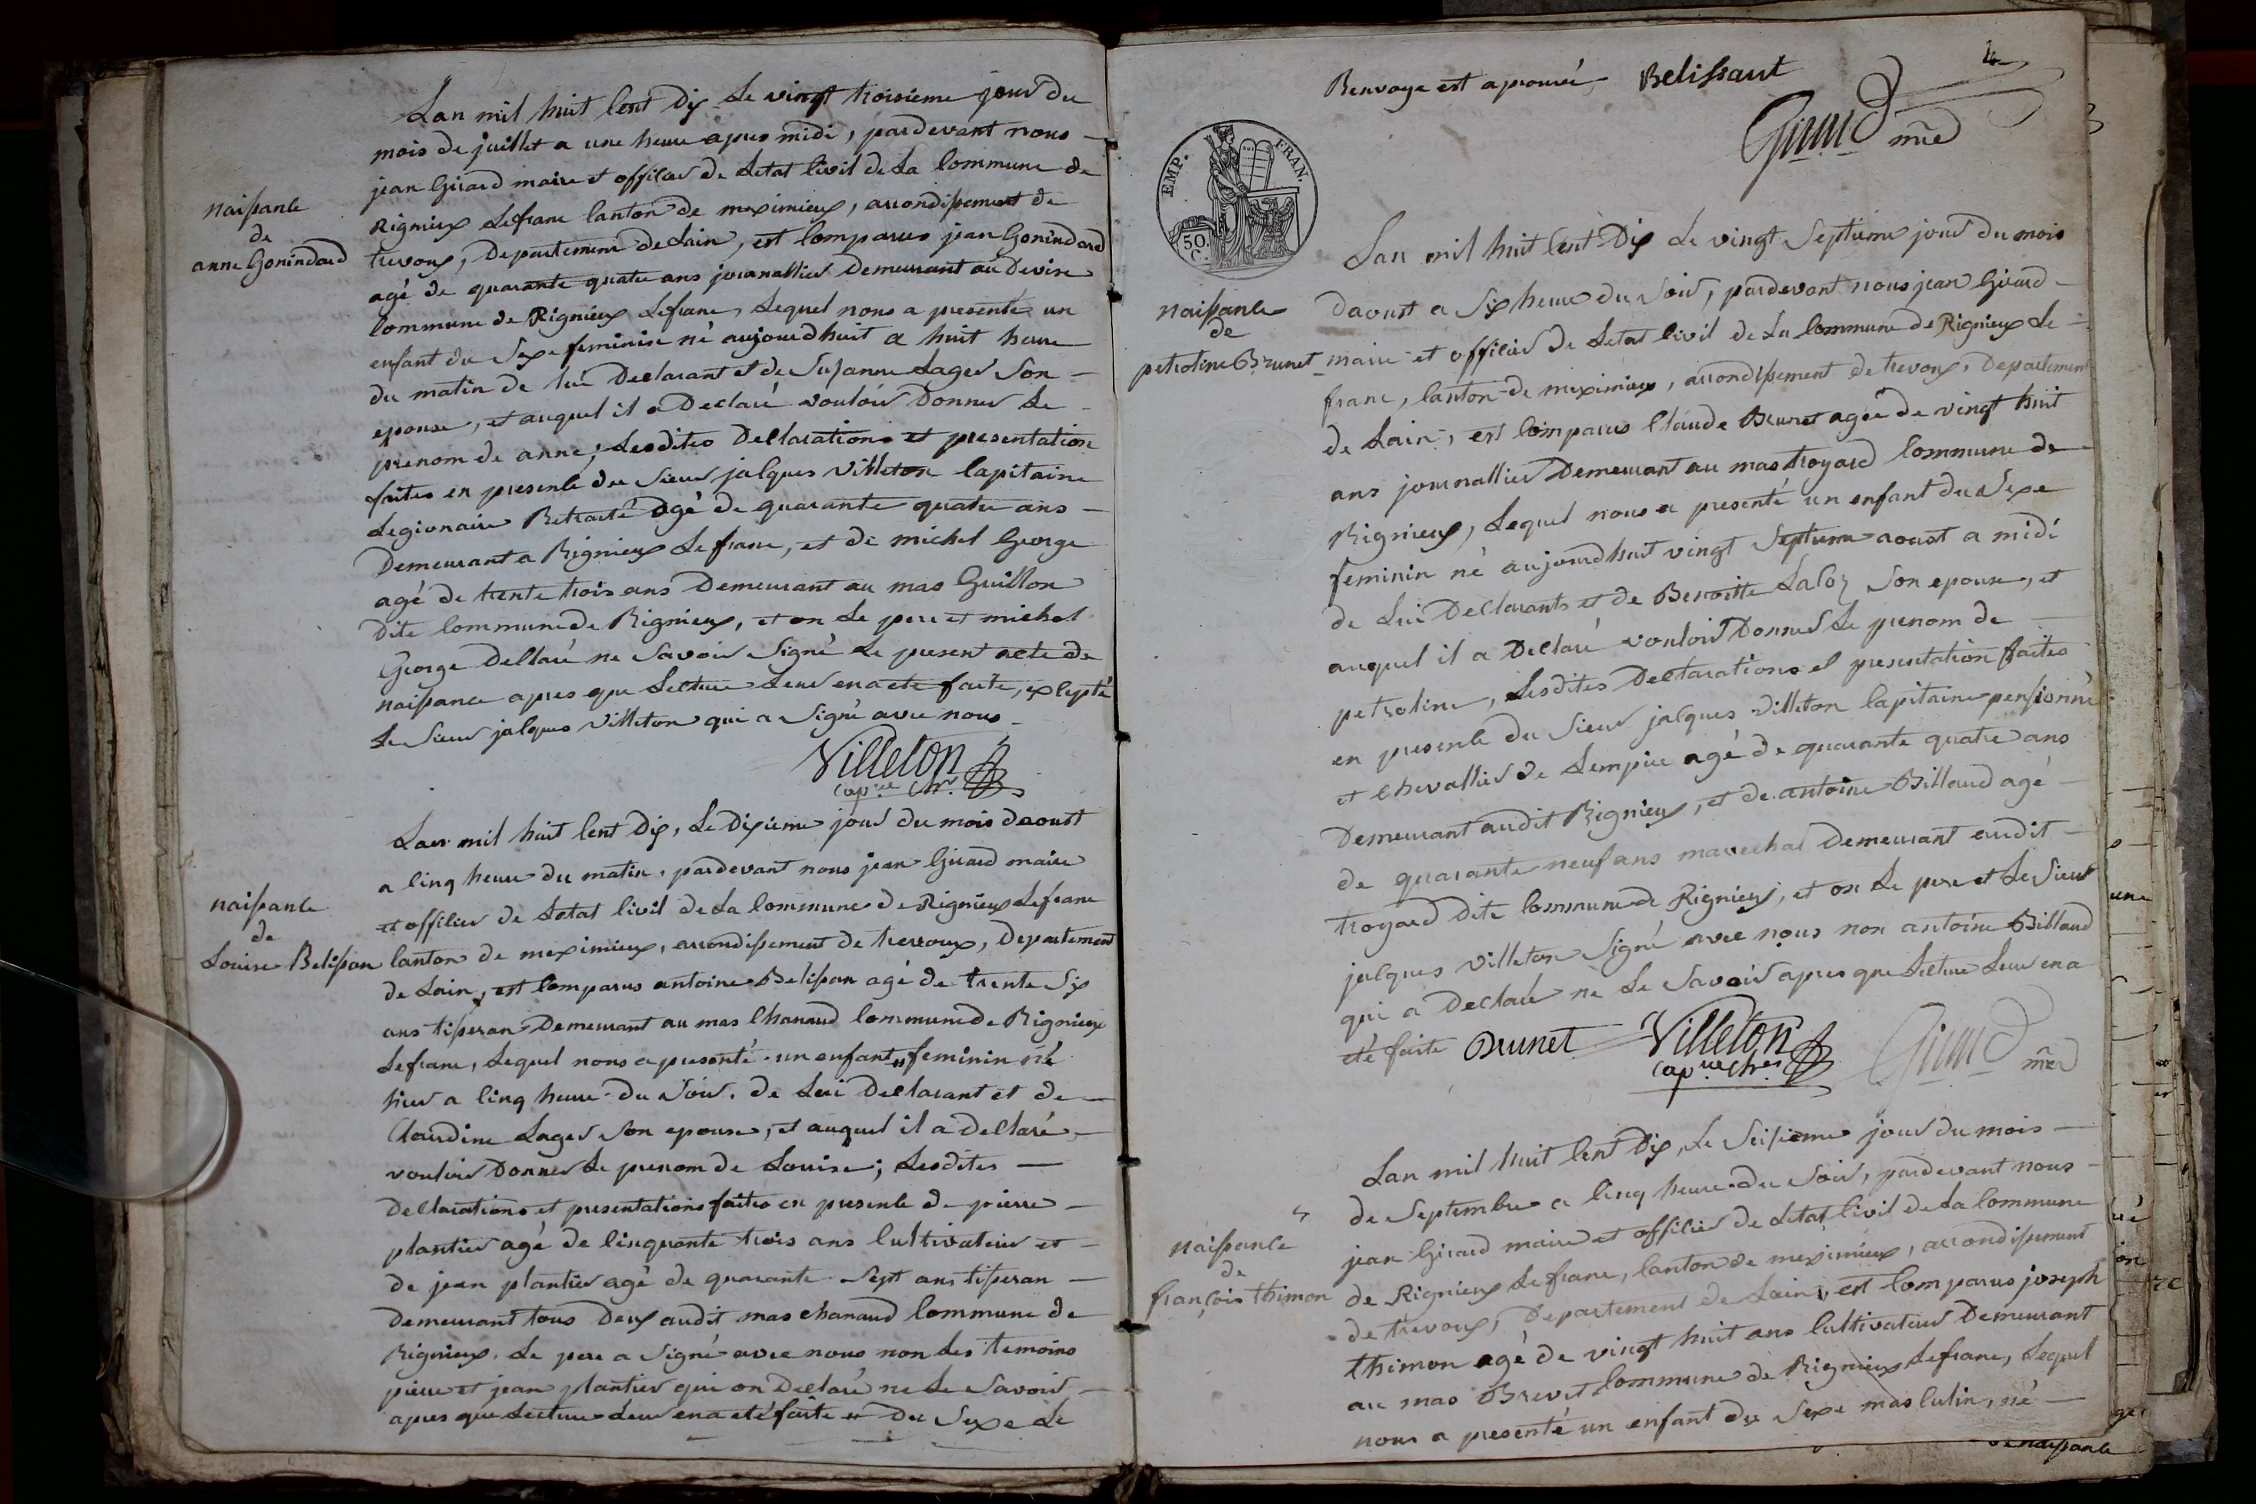 Lan mil huit Cent Dix Le vingt troisieme jour Du
mois de juillet a une heure apres midi, pardevant nous
jean Girard maire et officier de Letat Civil de La Commune de
Rignieux Lefranc Canton de meximieux, arrondissement de
trevoux, Departement de Lain, est Comparus jean Gonindard
naissance
de
anne Gonindard
agé de quarante quatre ans journallier Demeurant au Devire
Commune de Rignieux Lefranc, Lequel nous a presenté un
enfant du Sexe feminin né aujourdhuit a huit heure
du matin de lui Declarant et de Susanne Lager Son
epouse, et auquel il a Declaré vouloir Donner Le
prenom de anne; Lesdites Declarations et presentation
faites en presence du Sieur jacques Villeton Capitaine
Legionaire Retraité agé de quarante quatre ans
Demeurant a Rignieux Lefranc, et de michel George
agé de trente trois ans Demeurant au mas Guillon
Dite Commune de Rignieux, et on Le pere et michel
George Declaré ne Savoir Signé Le present acte de
naissance apres que Lecture Leur en a ete faite, excepté
Le Sieur jacques Villeton qui a Signé avec nous
Villeton
capne chr.
Lan mil huit Cent Dix, Le Dixieme jour du mois daoust
a Cinq heure du matin, pardevant nous jean Girard maire
et officier de Letat Civil de La Commune de Rignieux Lefranc
naissance
de
Louise Belissan
Canton de meximieux, arrondissement de trevoux, Departement
de Lain, est Comparus antoine Belissan agé de trente Six
ans tisseran Demeurant au mas Chanaud Commune de Rignieux
Lefranc, Lequel nous a presenté un enfant " feminin né
hier a Cinq heure du Soir, de Lui Declarant et de
Claudine Lager Son epouse, et auquel il a Declaré
vouloir Donner Le prenom de Louise; Lesdites
Declarations et presentations faites en presence de pierre
plantier agé de Cinquante trois ans Cultivateur et
de jean plantier agé de quarante Sept ans tisseran
Demeurant tous Deux audit mas chanaud Commune de
Rignieux. Le pere a Signé avec nous non Les temoins
pierre et jean plantier qui on Declaré ne Le Savoir
apres que Lecture Leur en a eté faite " Du Sexe Le
Renvoye est aprouvé Belissant
Girard mre
EMP. FRAN.
50.
C.
Lan mil huit Cent Dix Le vingt Septieme jour Du mois
naissance
de
petroline Brunet
Daoust a Six heure du Soir, pardevant nous jean Girard
maire et officier de Letat Civil de La Commune de Rignieux Le
franc, Canton de meximieux, arrondissement de trevoux, Departement
de Lain, est Comparus Claude Brunet agée de vingt huit
ans journallier Demeurant au mas troyard Commune de
Rignieux, Lequel nous a presenté un enfant du Sexe
feminin né aujourdhuit vingt Septieme aoust a midi
de Lui Declarants et de Benoitte Son epouse, et
auquel il a Declaré vouloir Donner Le prenom de
petroline, Lesdites Declarations et presentation faites
en presence du Sieur jacques Villeton Capitaine pensionné
et Chevallier de Lempire agé de quarante quatre ans
Demeurant audit Rignieux, et de antoine Billaud agé
de quarante neuf ans marechal Demeurant audit
troyard Dite Commune de Rignieux, et on Le pere et Le Sieur
jacques Villeton Signé avec nous non antoine Billaud
qui a Declaré né Le Savoir apres que Lecture Leur en a
eté faite Brunet Villeton Girard mre
capne chr
Lan mil huit Cent Dix, Le Seisieme jour du mois
de Septembre a Cinq heure du Soir, pardevant nous
naissance
de
françois thimon
jean Girard maire et officier de Letat Civil de La Commune
de Rignieux Lefranc, Canton de meximieux, arrondissement
de trevoux, Departement de Lain, est Comparus joseph
thimon agé de vingt huit ans Cultivateur Demeurant
au mas Brevet Commune de Rignieux Lefranc, Lequel
nous a presenté un enfant du Sexe masculin, né